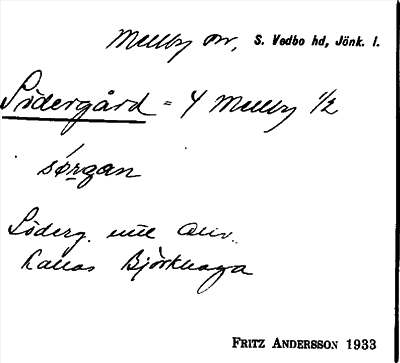 Mellby sn, S. Vedbo hd, Jönk. l.
Södergård = 4 Mellby 1/2
sørgan
Söderg.
kallas Björkhaga
FRITZ ANDERSSON 1933